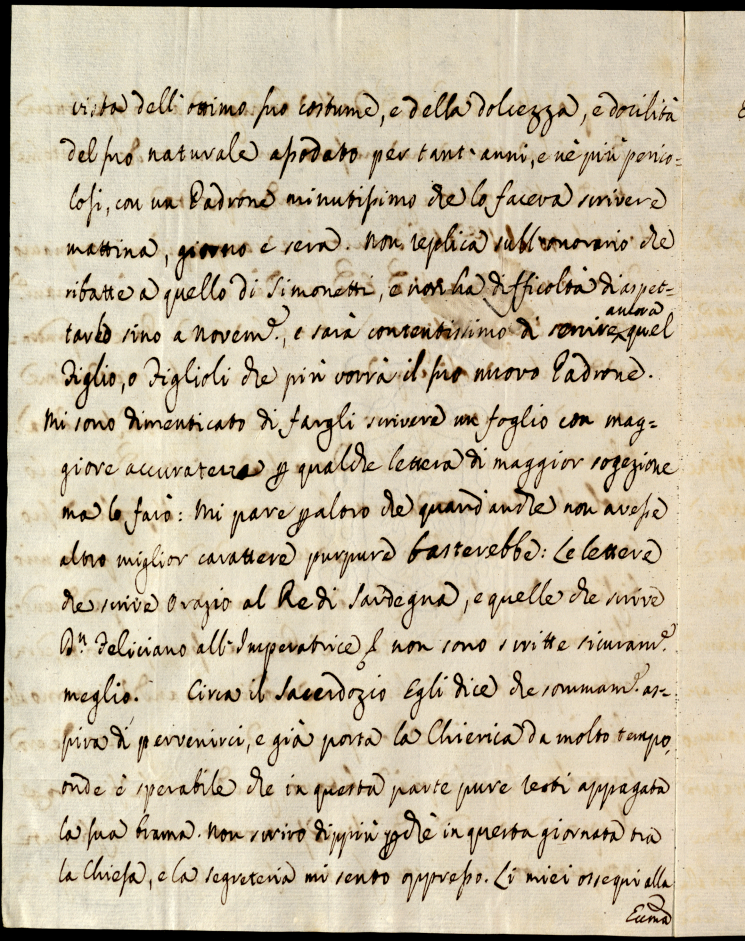 vista dell' ottimo suo costume, e della dolcezza, e docilità
del suo naturale assodato per tant' anni, e ne' più perico-
losi, con un Padrone minutissimo che lo faceva scrivere
mattina, giorno e sera. Non replica sull' onorario che
ribatte a quello di Simonetti, e non ha difficoltà di aspet-
tare sino a Novem.e, e sarà contentissimo di servire ancora quel
Figlio, o Figlioli che più vorrà il suo nuovo Padrone.
Mi sono dimenticato di fargli scrivere un foglio con mag-
giore accuratezza p qualche lettera di maggior sogezione
ma lo farò: Mi pare paltro che quand' anche non avesse
altro miglior carattere purpure basterebbe: Le lettere
che scrive Orazio al Re di Sardegna, e quelle che scrive
Dn Feliciano all' Imperatrice non sono scritte sicuram.e
meglio. Circa il Sacerdozio Egli dice che sommam.e as-
pira di pervenirci, e già porta la Chierica da molto tempo,
onde è sperabile che in questa parte pure resti appagata
la sua brama. Non scrivo dippiù pchè in questa giornata tra
la Chiesa, e la segreteria mi sento oppresso. Li miei ossequi alla
Eccma